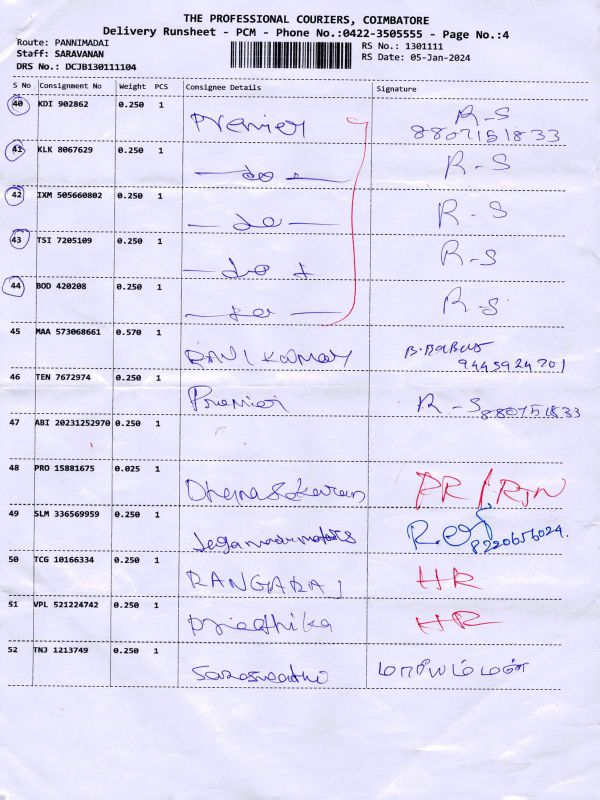 THE PROFESSIONAL COURIERS, COIMBATORE
Delivery Runsheet - PCM - Phone No.:0422-3505555 - Page No.:4
Route: PANNIMADAI
RS No.: 1301111
Staff: SARAVANAN
RS Date: 05-Jan-2024
DRS No.: DCJB130111104
S No Consignment No Weight PCS Consignee Details Signature
40 KDI 902862 0.250 1 Premier R-S
8807151833
41 KLK 8067629 0.250 1 — do — R-S
42 IXM 505660802 0.250 1 — do — R-S
43 TSI 7205109 0.250 1 — do — R-S
44 BOD 420208 0.250 1 — do — R-S
45 MAA 573068661 0.570 1 RAVI Kumar B. Babu
9445924701
46 TEN 7672974 0.250 1 Premier R-S 8807151833
47 ABI 20231252970 0.250 1
48 PRO 15881675 0.025 1 PR/RTN
49 SLM 336569959 0.250 1 8220656024.
50 TCG 10166334 0.250 1 RANGARAJ HR
51 VPL 521224742 0.250 1 HR
52 TNJ 1213749 0.250 1